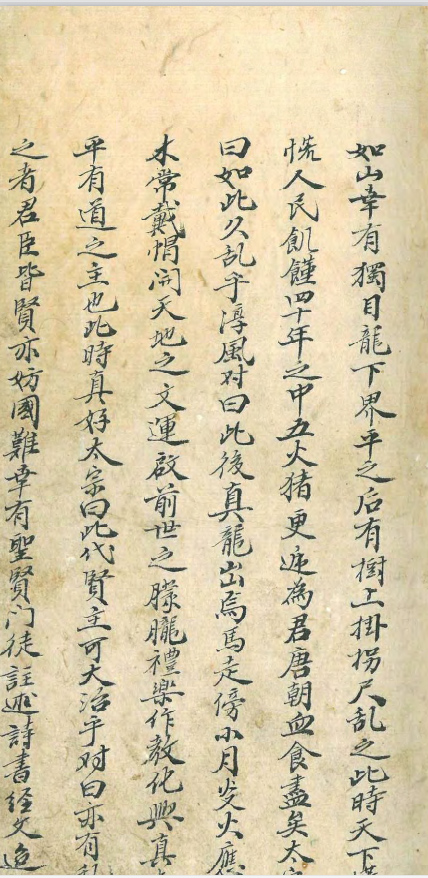 如山幸有獨目龍下界平之后有樹上掛拐尺乱之此時天下
慌人民飢饉四十年之中五火猪更遞為君唐朝血食盡矣太
曰如此久乱乎淳風对曰此後真龍出焉馬走傍小月炎火應
木常戴帽開天地之文運啟前世之朦朧禮樂作教化興真
平有道之主也此時真好太宗曰此代賢主可大治乎对曰亦有
之者君臣皆賢亦妨國難幸有聖賢门徒註述詩書经文造